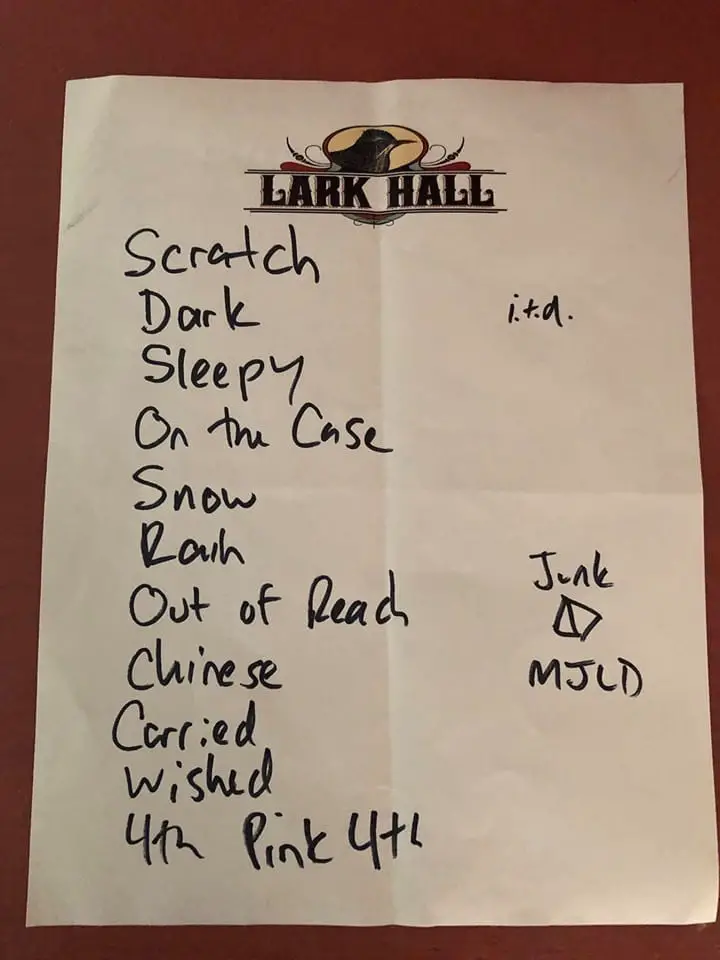 LARK HALL
Scratch
Dark
i.t.d.
Sleepy
On the Case
Snow
Rain
Junk
Out of Reach
Chinese
MJLD
Carried
Wished
4th Pink 4th